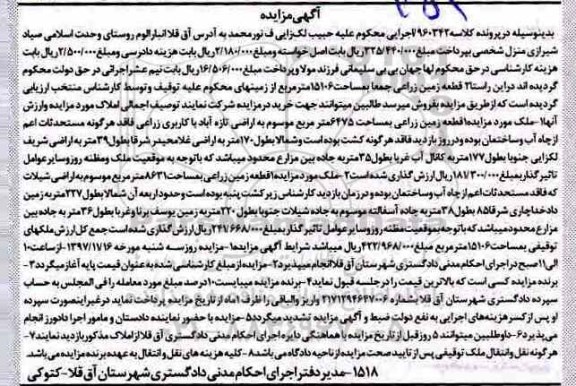 آگهی مزایده
بدینوسیله در پرونده کلاسه ۹۶۰۳۴۲ اجرایی محکوم علیه حبیب لکزایی ف نورمحمد به آدرس آق قلا انبارالوم روستای وحدت اسلامی صیاد
شیرازی منزل شخصی بپرداخت مبلغ ۳۲۵/۴۴۰/۰۰۰ ریال بابت اصل خواسته ومبلغ ۲/۱۸۰/۰۰۰ ریال بابت هزینه دادرسی ومبلغ ۲/۵۰۰/۰۰۰ ریال بابت
هزینه کارشناسی در حق محکوم لها جهان بی بی سلیمانی فرزند مولا وپرداخت مبلغ ۱۶/۵۰۶/۰۰۰ ریال بابت نیم عشر اجرائی در حق دولت محکوم
گردیده اند در این راستا ۲ قطعه زمین زراعی جمعا بمساحت ۱۵۱۰۶ مترمربع از زمینهای محکوم علیه توقیف و توسط کارشناس منتخب ارزیابی
گردیده است که از طریق مزایده بفروش میرسد طالبین میتوانند جهت خرید در مزایده شرکت نمایند توصیف اجمالی املاک مورد مزایده وارزش
آنها ۱- ملک مورد مزایده ۱ قطعه زمین زراعی بمساحت ۶۴۷۵ متر مربع موسوم به اراضی تازه آباد با کاربری زراعی فاقد هر گونه مستحدثات اعم
از چاه آب وساختمان بوده ودر روز بازدید فاقد هر گونه کشت بوده است وشمالا بطول ۱۷۰ متر به اراضی غلامحیدر شرقا بطول ۳۹ متر به اراضی شریف
لکزایی جنوبا بطول ۱۷۷ متر به کانال آب غربا بطول ۳۵ متر به جاده بین مزارع محدود میباشد که باتوجه به موقعیت ملک ومظنه روز وسایر عوامل
تاثیر گذار بمبلغ ۱۸۱/۳۰۰/۰۰۰ ریال ارزش گذاری شده است ۲- ملک مورد مزایده ۱ قطعه زمین زراعی بمساحت ۸۶۳۱ متر مربع موسوم به اراضی شیلات
که فاقد مستحدثات اعم از چاه آب وساختمان بوده و در زمان بازدید کارشناس زیر کشت پنبه بوده است وحدود اربعه آن شمالا بطول ۲۳۷ متر به زمین
داد خداچاری شرقا ۸۵ بطول ۳۸ متر به جاده آسفالته موسوم به جاده شیلات جنوبا بطول ۲۲۰ متر به زمین یوسف برنا وغربا بطول ۳۶ متر به جاده بین
مزارع محدود میباشد که باتوجه بموقعیت مظنه روز وسایر عوامل تاثیر گذار بمبلغ ۲۴۷/۶۶۸/۰۰۰ ریال ارزش گذاری شده است جمع کل ارزش ملکهای
توقیفی بمساحت ۱۵۱۰۶ مترمربع مبلغ ۴۲۲/۹۶۸/۰۰۰ ریال میباشد شرایط آگهی مزایده ۱- مزایده روز سه شنبه مورخه ۱۳۹۷/۱۷/۱۶ از ساعت ۱۰
الی ۱۱ صبح در اجرای احکام مدنی دادگستری شهرستان آق قلا انجام میپذیرد ۲- مزایده از مبلغ کارشناسی شده به عنوان قیمت پایه آغاز میگردد ۳-
برنده مزایده کسی است که بالاترین قیمت را در جلسه قبول نماید ۴- برنده مزایده میبایست ۱۰ درصد مبلغ مورد معامله را فی المجلس به حساب
سپرده دادگستری شهرستان آق قلا بشماره ۲۱۷۱۲۹۴۶۶۷۰۰۶ واریز والباقی را ظرف ۱ ماه از تاریخ مزایده پرداخت نماید در غیر اینصورت سپرده
او پس از کسر هزینه های اجرایی به نفع دولت ضبط و آگهی مزایده تشدید میگردد ۵- مزایده با حضور نماینده دادستان و مامور اجرا دادورز انجام
می پذیرد ۶- داوطلبین میتوانند ۵ روز قبل از تاریخ مزایده با هماهنگی دایره اجرای احکام مدنی دادگستری آق قلا از املاک مذکور بازدید نمایند ۷-
هر گونه نقل وانتقال ملک توقیفی پس از تایید صحت مزایده از ناحیه دادگاه می باشد ۸- کلیه هزینه های نقل وانتقال به عهده برنده مزایده می باشد.
۱۵۱۸- مدیر دفتر اجرای احکام مدنی دادگستری شهرستان آق قلا - کتوکی